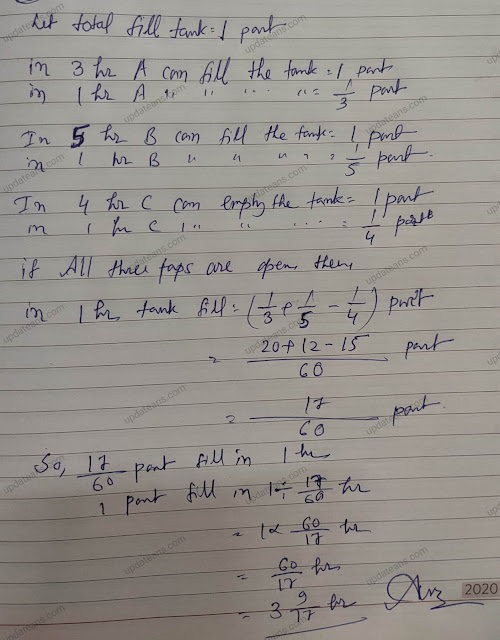 Let total fill tank = 1 part
in 3 hr A can fill the tank = 1 part
in 1 hr A " " " " = 1/3 part
In 5 hr B can fill the tank = 1 part
in 1 hr B " " " " = 1/5 part.
In 4 hr C can empty the tank = 1 part
in 1 hr C " " " = 1/4 part
if All three taps are open then,
in 1 hr tank fill = (1/3 + 1/5 - 1/4) part
= (20+12-15)/60 part
= 17/60 part.
So, 17/60 part fill in 1 hr
1 part fill in 1 ÷ 17/60 hr
= 1 × 60/17 hr
= 60/17 hrs
= 3 9/17 hr Ans
2020
updateans.com